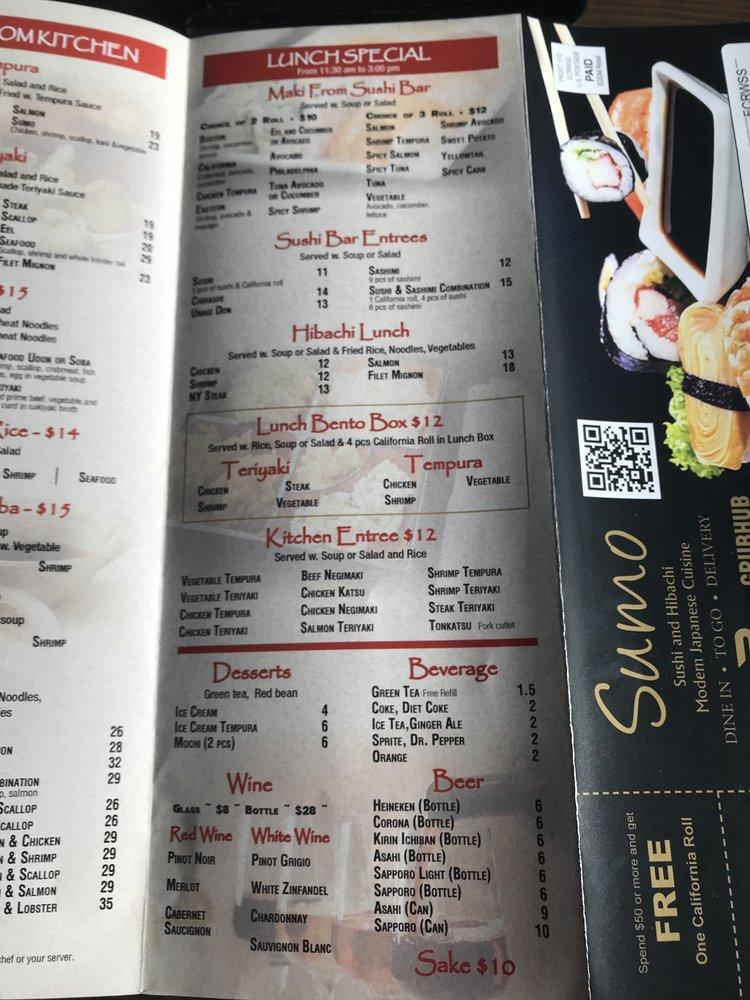 OM KITCHEN
pura
Salad and Rice
Fried w. Tempura Sauce
SALMON
SUMO 19
Chicken, shrimp, scallop, kani & vegetable 23
yaki
alad and Rice
ade Teriyaki Sauce
STEAK
SCALLOP 19
EEL 19
SEAFOOD 20
Scallop, shrimp and whole lobster tail 29
FILET MIGNON
23
$15
ad
heat Noodles
eat Noodles
AFOOD UDON OR SOBA
mp, scallop, crabmeat, fish
s, egg in vegetable soup
KIYAKI
d prime beef, vegetable and
curd in sukiyaki broth
Rice - $14
alad
SHRIMP | SEAFOOD
ba - $15
up
w. Vegetable
SHRIMP
soup
SHRIMP
Noodles,
es
26
ON 28
32
BINATION 29
p, salmon
SCALLOP 26
CALLOP 26
N & CHICKEN 29
& SHRIMP 29
& SCALLOP 29
& SALMON 29
& LOBSTER 35
chef or your server.
LUNCH SPECIAL
From 11:30 am to 3:00 pm
Maki From Sushi Bar
Served w. Soup or Salad
CHOICE OF 2 ROLL • $10
BOSTON
Shrimp, cucumber,
CALIFORNIA
cucumber
CHICKEN TEMPURA
EASTERN
Shrimp, avocado &
EEL AND CUCUMBER
OR AVOCADO
AVOCADO
PHILADELPHIA
TUNA AVOCADO
OR CUCUMBER
SPICY SHRIMP
CHOICE OF 3 ROLL • $12
SALMON
SHRIMP TEMPURA
SPICY SALMON
SPICY TUNA
TUNA
VEGETABLE
Avocado, cucumber,
lettuce
SHRIMP AVOCADO
SWEET POTATO
YELLOWTAIL
SPICY CRAB
Sushi Bar Entrees
Served w. Soup or Salad
SUSHI 11
5 pcs of sushi & California roll
CHIRASHI 14
UNAGI DON 13
SASHIMI 12
9 pcs of sashimi
SUSHI & SASHIMI COMBINATION 15
1 California roll, 4 pcs of sushi
6 pcs of sashimi
Hibachi Lunch
Served w. Soup or Salad & Fried Rice, Noodles, Vegetables
CHICKEN 12
SHRIMP 12
NY STEAK 13
SALMON 13
FILET MIGNON 18
Lunch Bento Box $12
Served w. Rice, Soup or Salad & 4 pcs California Roll in Lunch Box
Teriyaki
CHICKEN STEAK
SHRIMP VEGETABLE
Tempura
CHICKEN VEGETABLE
SHRIMP
Kitchen Entree $12
Served w. Soup or Salad and Rice
VEGETABLE TEMPURA
VEGETABLE TERIYAKI
CHICKEN TEMPURA
CHICKEN TERIYAKI
BEEF NEGIMAKI
CHICKEN KATSU
CHICKEN NEGIMAKI
SALMON TERIYAKI
SHRIMP TEMPURA
SHRIMP TERIYAKI
STEAK TERIYAKI
TONKATSU Pork cutlet
Desserts
Green tea, Red bean
ICE CREAM 4
ICE CREAM TEMPURA 6
MOCHI (2 PCS) 6
Beverage
GREEN TEA Free Refill 1.5
COKE, DIET COKE 2
ICE TEA,GINGER ALE 2
SPRITE, DR. PEPPER 2
ORANGE 2
Wine
GLASS ~ $8 ~ BOTTLE ~ $28 ~
Red Wine
PINOT NOIR
MERLOT
CABERNET
SAUCIGNON
White Wine
PINOT GRIGIO
WHITE ZINFANDEL
CHARDONNAY
SAUVIGNON BLANC
Beer
HEINEKEN (BOTTLE) 6
CORONA (BOTTLE) 6
KIRIN ICHIBAN (BOTTLE) 6
ASAHI (BOTTLE) 6
SAPPORO LIGHT (BOTTLE) 6
SAPPORO (BOTTLE) 6
ASAHI (CAN) 9
SAPPORO (CAN) 10
Sake $10
PRSRT STD
ECRWSS
U.S. POSTAGE
PAID
EDDM Retail
ECRWSS
Sumo
Sushi and Hibachi
Modern Japanese Cuisine
DINE IN • TO GO • DELIVERY
GRUBHUB
Spend $50 or more and get
FREE
One California Roll